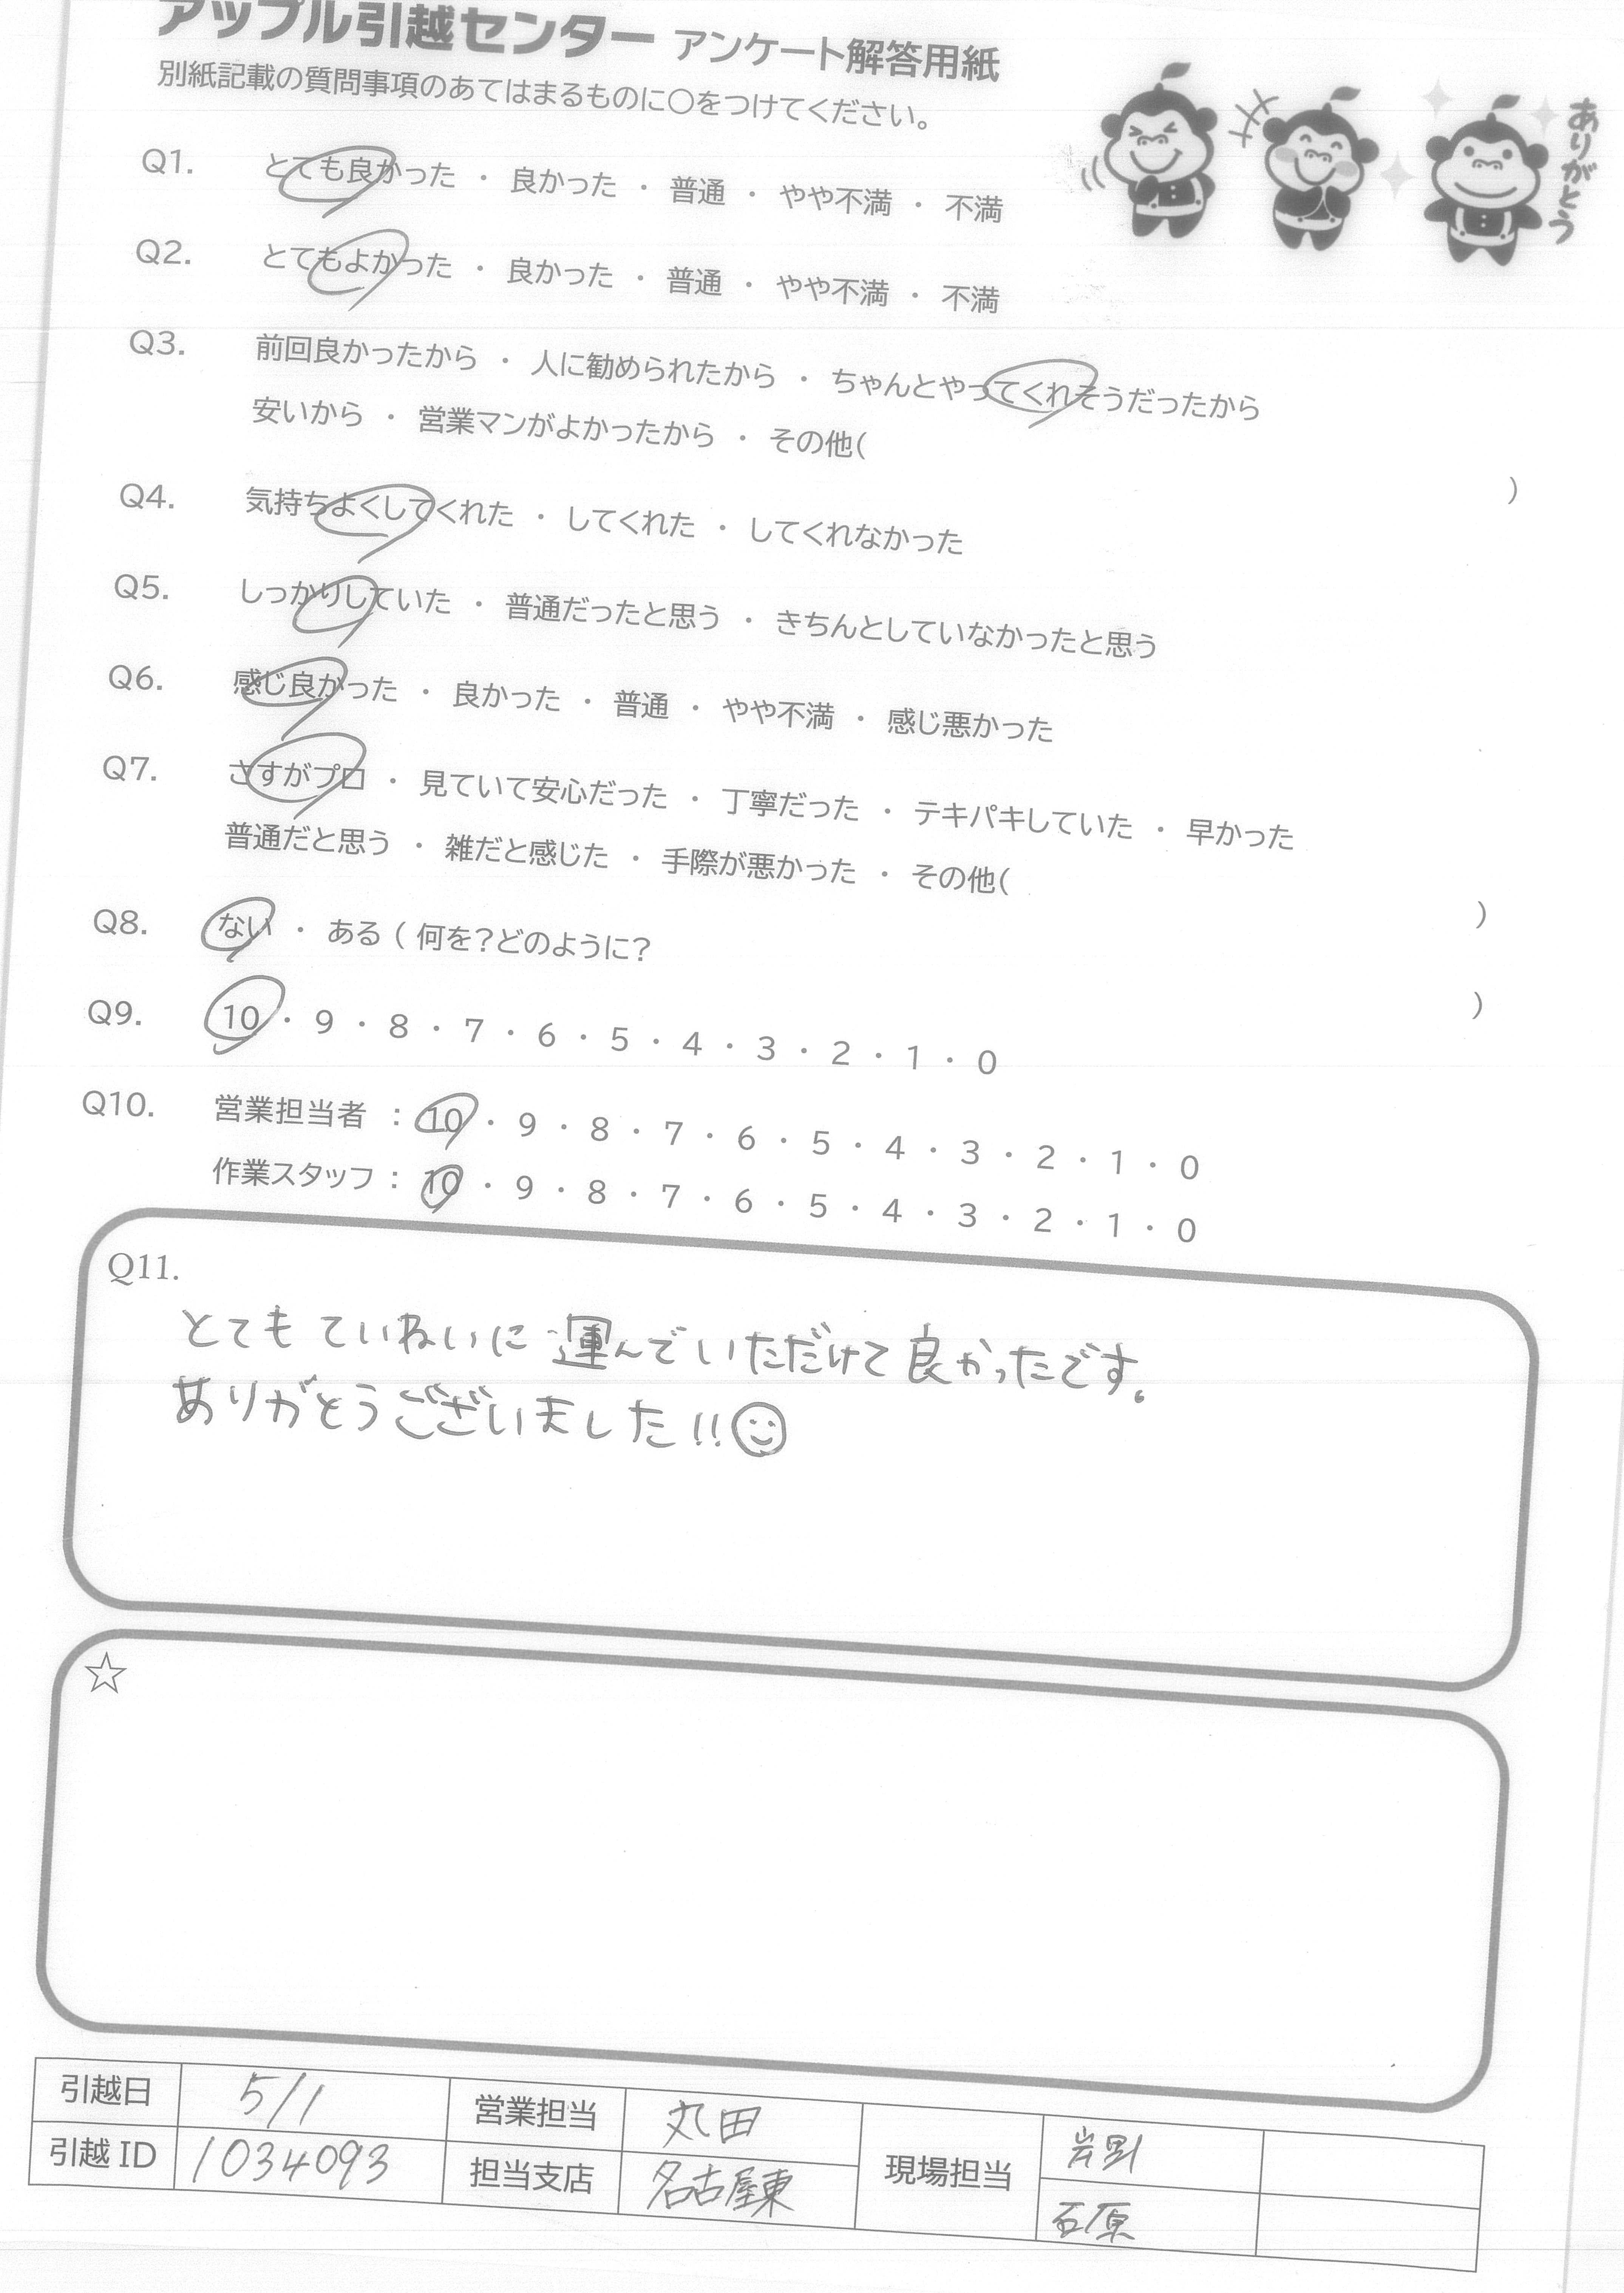 アップル引越センター アンケート解答用紙
別紙記載の質問事項のあてはまるものに〇をつけてください。
ありがとう
Q1. とても良かった ・ 良かった ・ 普通 ・ やや不満 ・ 不満
Q2. とてもよかった ・ 良かった ・ 普通 ・ やや不満 ・ 不満
Q3. 前回良かったから ・ 人に勧められたから ・ ちゃんとやってくれそうだったから
安いから ・ 営業マンがよかったから ・ その他( )
Q4. 気持ちよくしてくれた ・ してくれた ・ してくれなかった
Q5. しっかりしていた ・ 普通だったと思う ・ きちんとしていなかったと思う
Q6. 感じ良かった ・ 良かった ・ 普通 ・ やや不満 ・ 感じ悪かった
Q7. さすがプロ ・ 見ていて安心だった ・ 丁寧だった ・ テキパキしていた ・ 早かった
普通だと思う ・ 雑だと感じた ・ 手際が悪かった ・ その他( )
Q8. ない ・ ある ( 何を?どのように? )
Q9. 10 ・ 9 ・ 8 ・ 7 ・ 6 ・ 5 ・ 4 ・ 3 ・ 2 ・ 1 ・ 0
Q10. 営業担当者 : 10 ・ 9 ・ 8 ・ 7 ・ 6 ・ 5 ・ 4 ・ 3 ・ 2 ・ 1 ・ 0
作業スタッフ : 10 ・ 9 ・ 8 ・ 7 ・ 6 ・ 5 ・ 4 ・ 3 ・ 2 ・ 1 ・ 0
Q11.
とてもていねいに運んでいただけて良かったです。
ありがとうございました!!☺
☆
引越日 5/1 営業担当 丸田 現場担当
引越ID 1034093 担当支店 名古屋東 石原